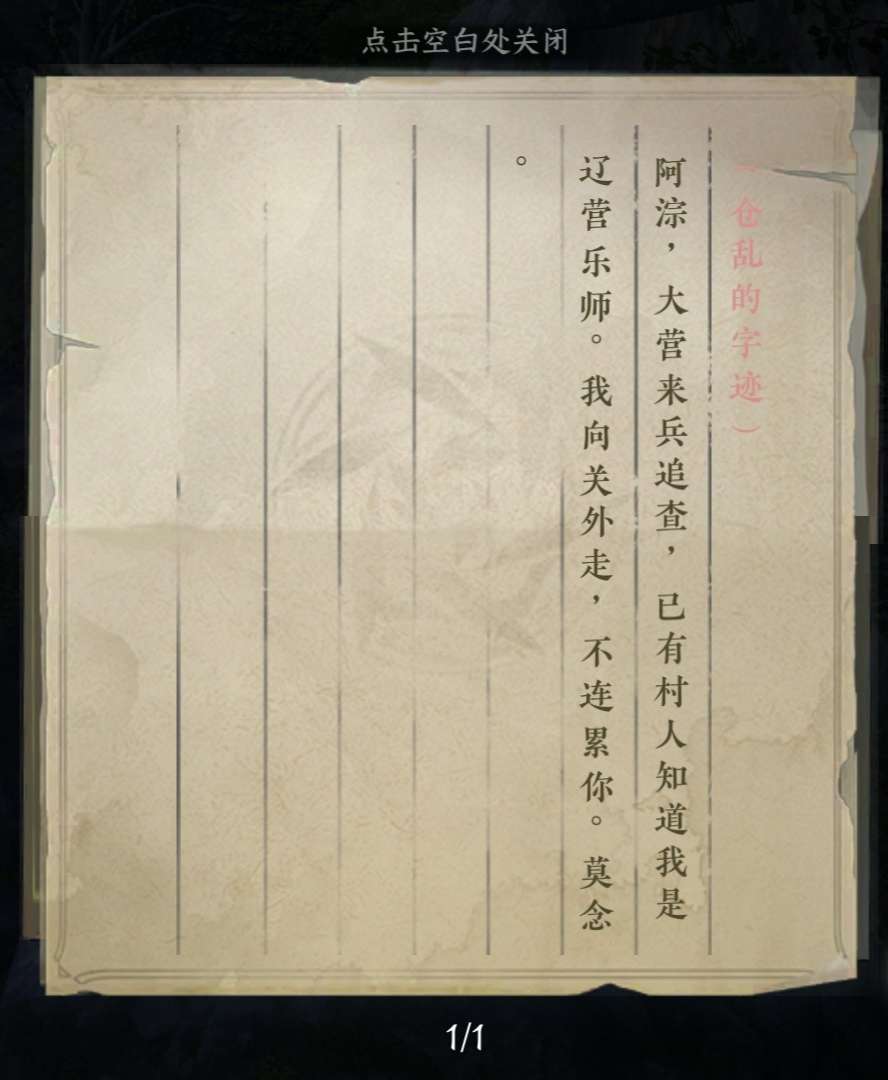 点击空白处关闭
（仓乱的字迹）
阿淙，大营来兵追查，已有村人知道我是
辽营乐师。我向关外走，不连累你。莫念
。
1/1